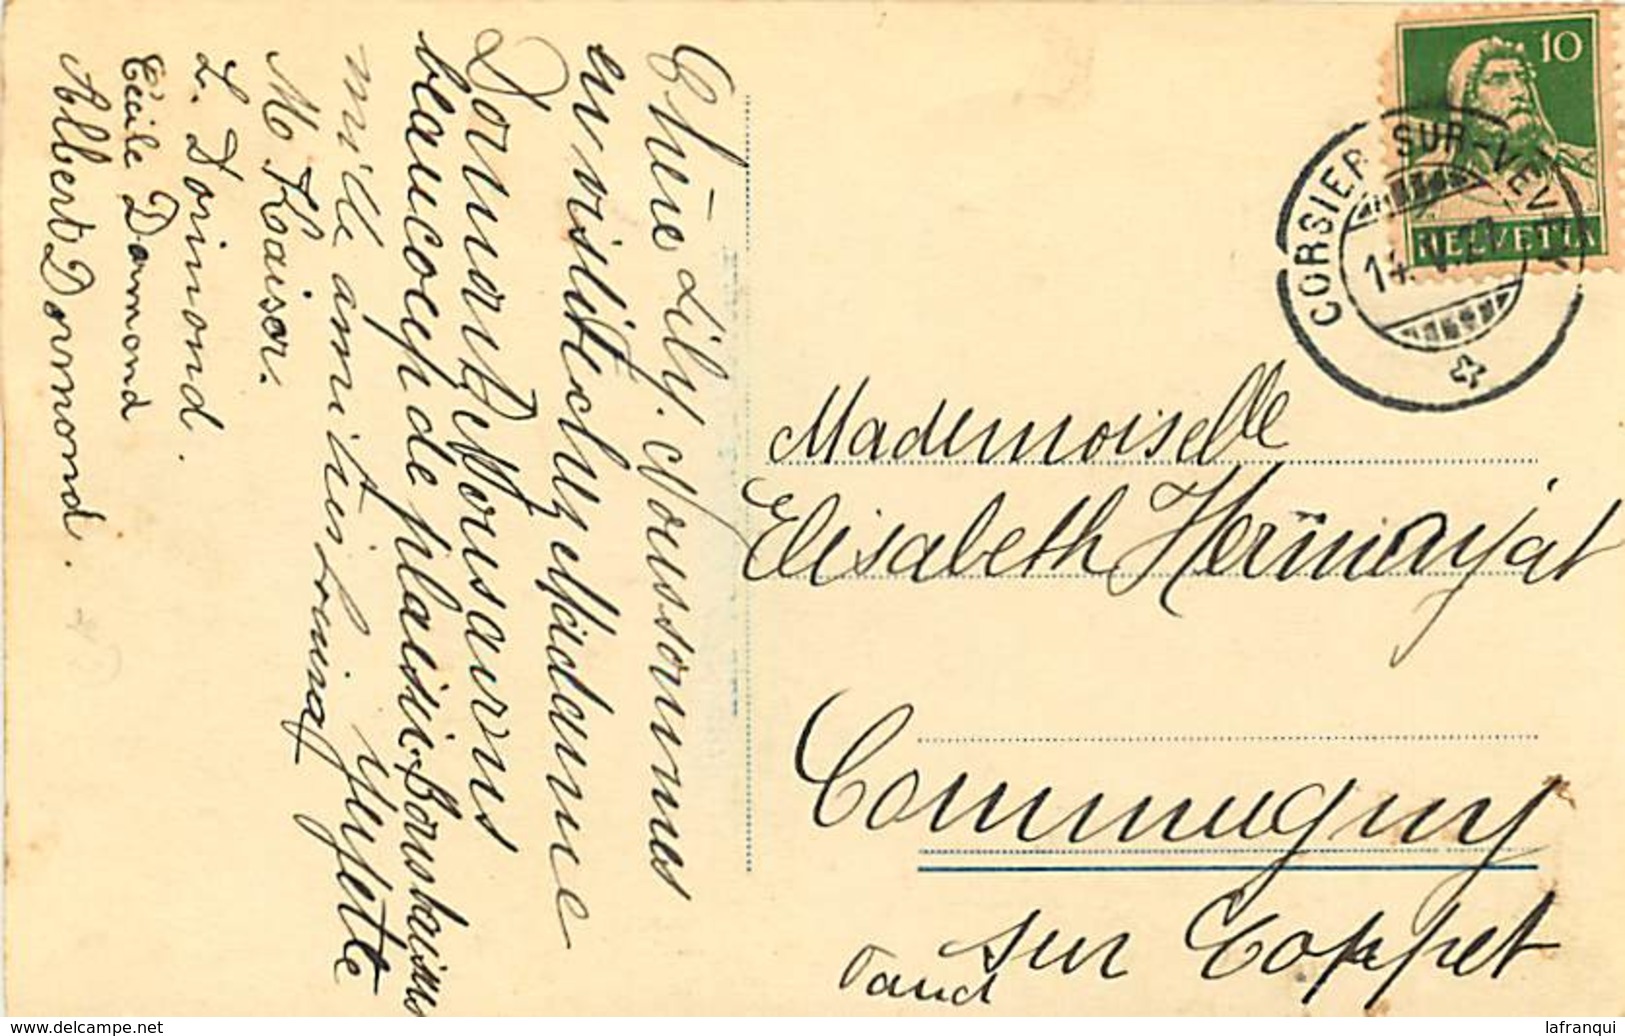 Chère Lily. Nous sommes
en visite chez Madame
Dormond. Nous aurons
beaucoup de plaisir, Bons baisers
mille amitiés Yvette
M Kaisor.
L. Dormond.
Cécile Dormond
Albert Dormond.
10
HELVETIA
CORSIER SUR-VEVEY
14. V. 2
Mademoiselle
Elisabeth Hermenjat
Commugny
sur Coppet
Vaud
www.delcampe.net
lafranqui